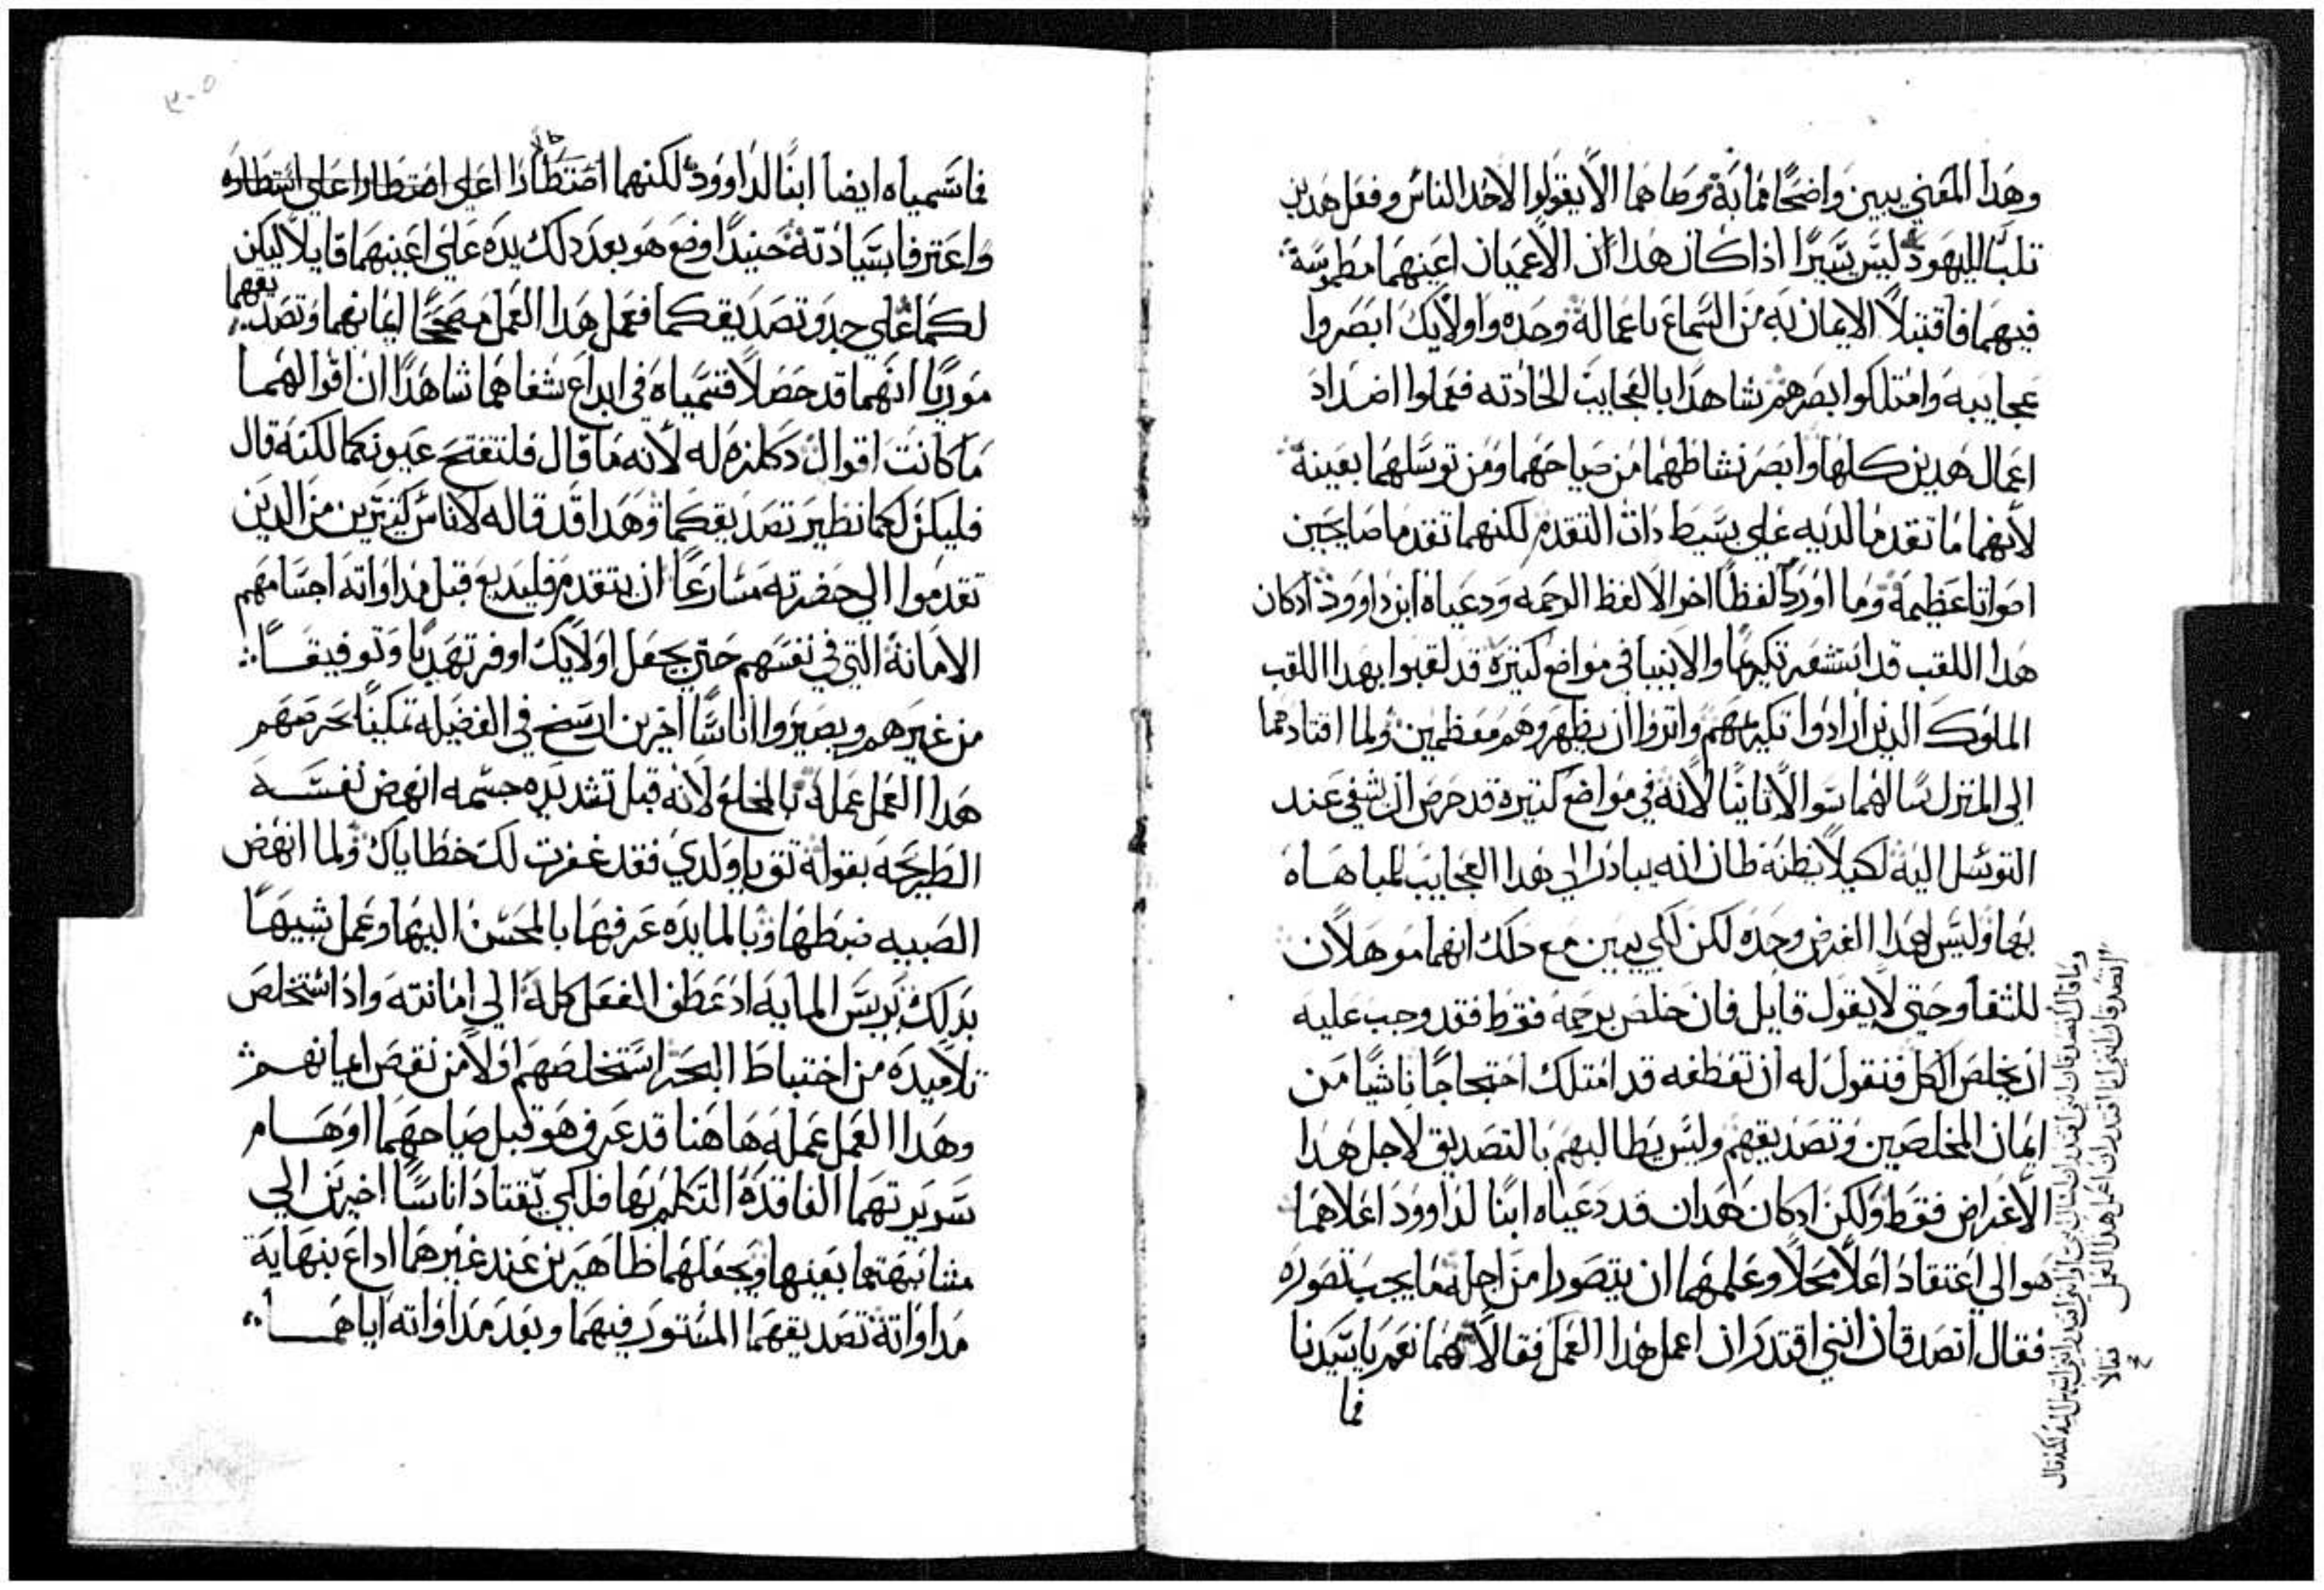 وهدا المعني يبين واضحًا فما به وصاهما الا يقولوا لاحد الناس وفعل هدين
تلبًا لليهود ليس يسيرًا اذا كان هدا ان الاعميان اعينهما مطموسة
فيهما فاقتبلا الايمان به من السماع باعماله وحده واولايك ابصروا
عجايبه وامتلكوا بصرهم شاهدا بالعجايب الحادته فعملوا اضداد
اعمال هدين كلها وابصر نشاطهما من صياحهما ومن توسلهما بعينه
لانهما ما تقدما اليه علي بسيط دات التقدم لكنهما تقدما صايحين
اصواتا عظيمة وما اوردا لفظًا اخر الا لفظ الرحمه ودعياه ابن داوود اد كان
هدا اللقب قد استشعر تكريمًا والانبيا في مواضع كتيرة قد لقبوا بهدا اللقب
الملوك الدين ارادوا تكريمهم واتروا ان يظهروهم معظمين ولما اقتادهما
الي المنزل سالهما سوالا تانيًا لانه في مواضع كتيرة قد حرص ان يشفي عند
التوسل اليه لكيلا يظنه ظان انه يبادر الي هدا العجايب للمباهاه
بها وليس لهدا الغرض وحده لكن لكي يبين مع دلك انهما موهلان
للشفا وحتي لا يقول قايل فان خلص برحمه فقط فقد وجب عليه
ان يخلص الكل فنقول له ان تعطفه قد امتلك احتجاجًا ناشيًا من
ايمان المخلصين وتصديقهم وليس يطالبهم بالتصديق لاجل هدا
الاغراض فقط ولكن اد كان هدان قد دعياه ابنًا لداوود اعلاهما
هو الي اعتقاد اعلا محلا وعلمهما ان يتصورا من اجله ما يجب تصوره
فقال اتصدقان انني اقتدر ان اعمل هدا العمل فقالا هما نعم يا سيدنا
فما
وما قال اتصدقان انني اقتدر ان اسال
اتصدقان انني انا اقتدر ان اعمل هدا العمل فقالا
فاسمياه ايضا ابنًا لداوود لكنهما
واعترفا بسيادته حينيدًا وضع هو بعد دلك يده علي اعينهما قايلا ليكن
لكما علي حدو تصديقكما فعمل هدا العمل مصححًا ايمانهما وتصديقهما
موريًا انهما قد حصلا قسمياه في ابداع شفاهما شاهدًا ان اقوالهما
ما كانت اقوال له لانه ما قال فلتنفتح عيونكما لكنه قال
فليكن لكما نظير تصديقكما وهدا قد قاله لاناس كتيرين من الدين
تقدموا الي حضرته مسارعًا ان يتقدم فليديع قبل مداواته اجسامهم
الامانة التي في نفسهم حتي يجعل اولايك اوفر تهديا وتوفيقًا
من غيرهم ويصيروا اناسًا اخرين ارسخ في الفضيله تمكينًا بحرصهم
هدا العمل عمله بالمخلع لانه قبل تشديده جسمه انهض نفسه
الطريحة بقوله تق يا ولدي فقد غفرت لك خطاياك ولما انهض
الصبيه ضبطها وبالمايده عرفها بالمحسن اليها وعمل شبيهًا
بدلك بريس الماية اد عطف الفعل كله الي امانته واد استخلص
تلاميده من اختباط البحر استخلصهم اولا من نقص ايمانهم
وهدا العمل عمله هاهنا قد عرف هو قبل صياحهما اوهام
سريرتهما الفاقدة التكلم بها فلكي يقتاد اناسًا اخرين الي
مشابهتهما بعينها ويجعلهما ظاهرين عند غيرهما اداع بنهاية
مداواته تصديقهما المستور فيهما وبعد مداواته اياهما